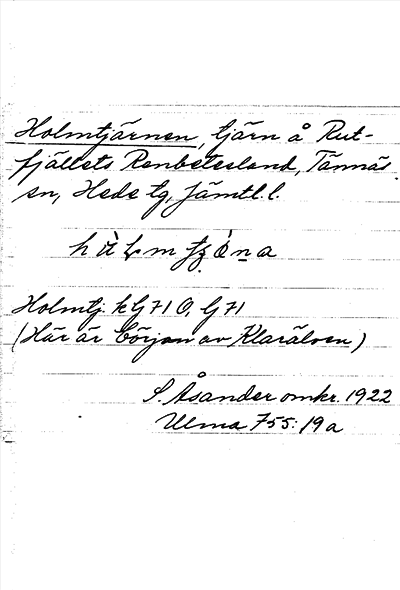 Holmtjärnen, tjärn å Rut-
fjällets Renbetesland, Tännäs
sn, Hede tg, Jämtl. l.
Holmtj. k G 71 O, G 71
(Här är början av Klarälven)
S. Åsander omkr. 1922
Ulma 755: 19a